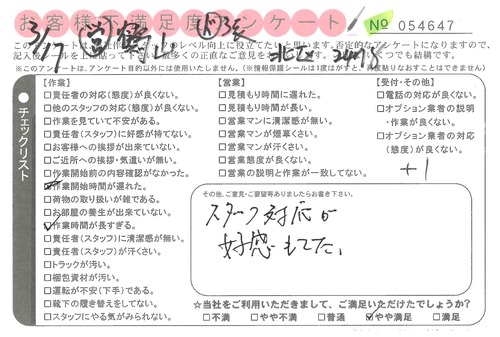 お客様不満足度アンケート
No 054647
3/7
このアンケートは、
のレベル向上に役立てたいと思います。否定的なアンケートになりますので、
記入後シールを上に貼って下さい
も結構です。
※このアンケートは、アンケート目的以外には使用いたしません。(※情報保護シールは1度はがすと、再度貼りなおすことはできません)
チェックリスト
【作業】
□責任者の対応(態度)が良くない。
□他のスタッフの対応(態度)が良くない。
□作業を見ていて不安がある。
□責任者(スタッフ)に好感が持てない。
□お客様への挨拶が出来ていない。
□ご近所への挨拶・気遣いが無い。
□作業開始前の内容確認がなかった。
□作業開始時間が遅れた。
□荷物の取り扱いが雑である。
□お部屋の養生が出来ていない。
□作業時間が長すぎる。
□責任者(スタッフ)に清潔感が無い。
□責任者(スタッフ)が汗くさい。
□トラックが汚い。
□梱包資材が汚い。
□運転が不安(下手)である。
□靴下の履き替えをしてない。
□スタッフにやる気がみられない。
【営業】
□見積もり時間に遅れた。
□見積もり時間が長い。
□営業マンに清潔感が無い。
□営業マンが煙草くさい。
□営業マンが汗くさい。
□営業態度が良くない。
□営業の説明と作業が一致してない。
【受付・その他】
□電話の対応が良くない。
□オプション業者の説明
・作業が良くない。
□オプション業者の対応
(態度)が良くない。
+1
その他、ご意見・ご要望等ありましたらお書き下さい。
スタッフ対応が
好感もてた。
☆当社をご利用いただきまして、ご満足いただけたでしょうか?
□不満 □やや不満 □普通 □やや満足 □満足